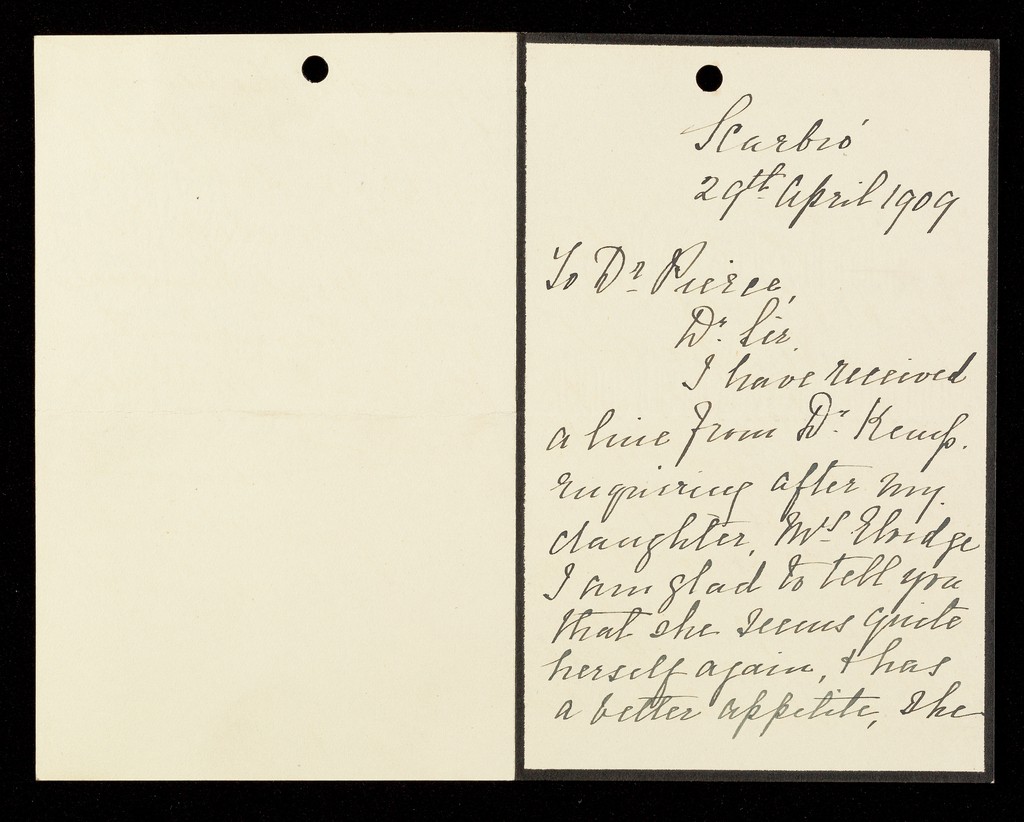 Scarbro'
29th April 1909
To Dr. Pierce,
Dr. Sir,
I have received
a line from Dr. Kemp.
enquiring after my
daughter, Mrs Elridge
I am glad to tell you
that she seems quite
herself again, & has
a better appetite, she